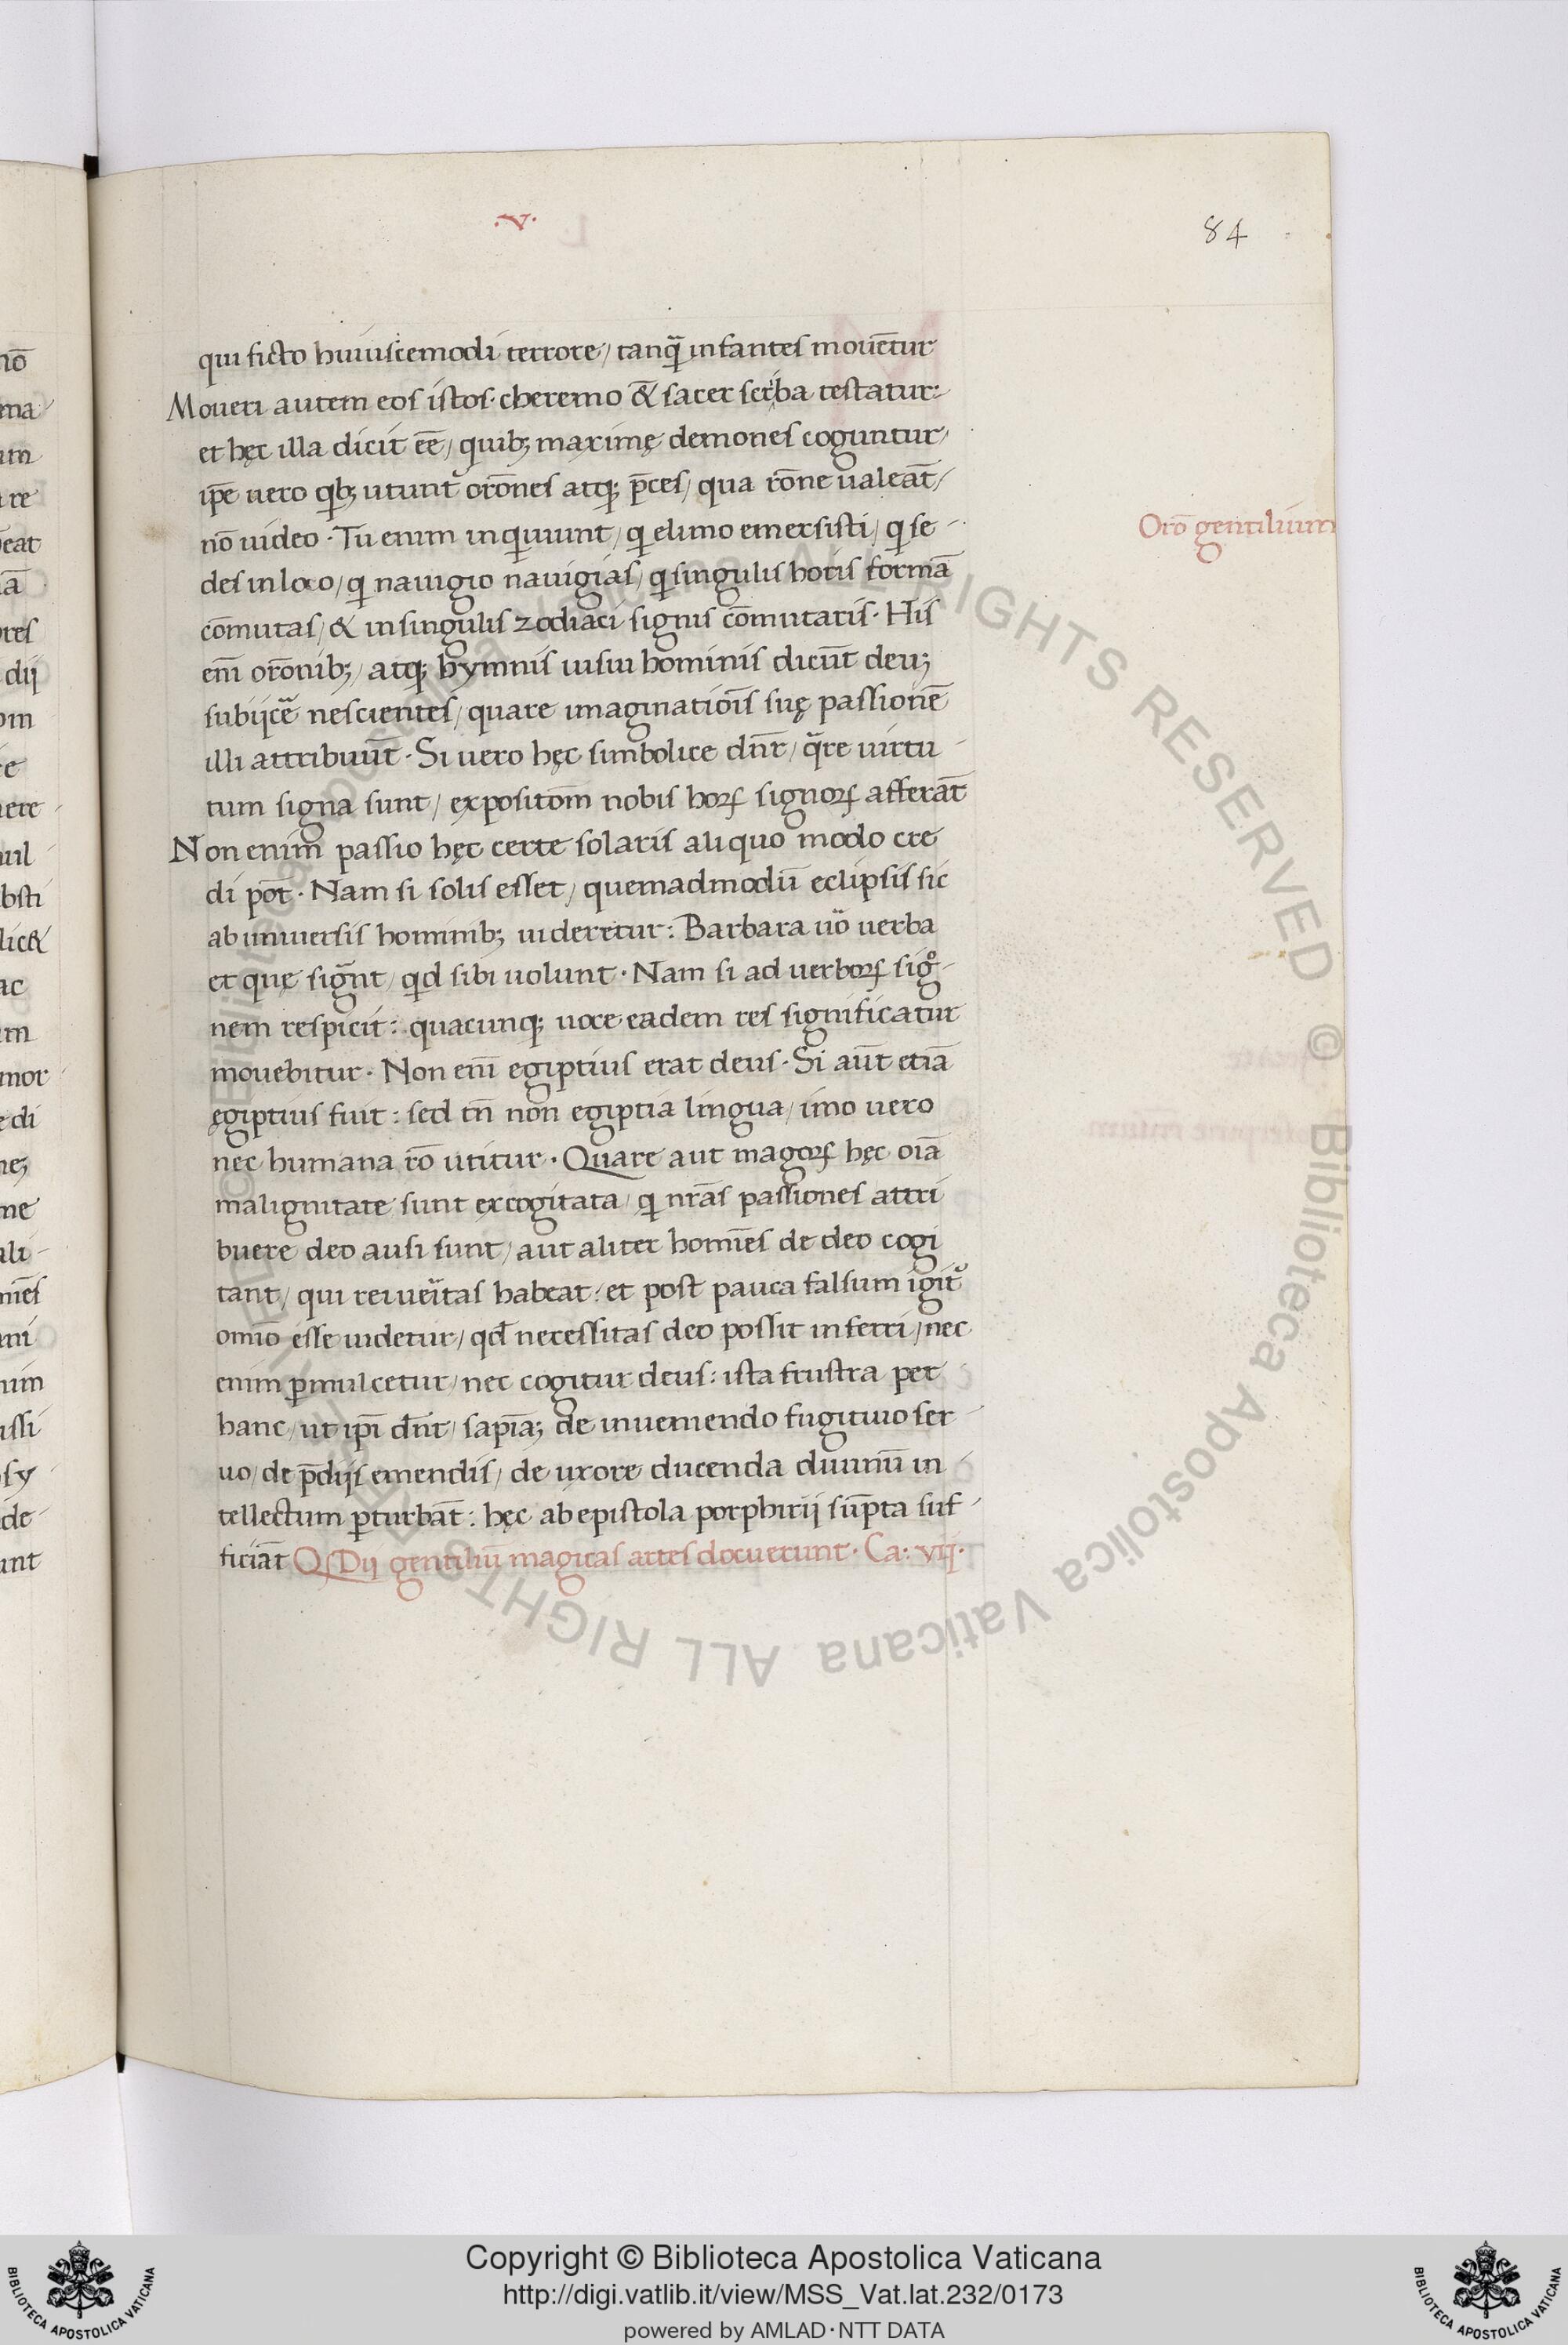 .v.
84
qui ficto huiuscemodi terrore/ tanq̃ infantes mouẽtur
Moueri autem eos istos· cheremo & sacer scriba testatur:
et hęc illa dicit eẽ/ quibꝫ maximę demones coguntur/
ip̃e uero qbꝫ utunt᷑ orõnes atqꝫ p̃ces/ qua rõne ualeãt/
nõ uideo· Tu enim inquiunt/ qi elimo emersisti/ qi se-
des in loco/ qi nauigio nauigias/ qi singulis horis formã
cõmutas/ & in singulis zodiaci signis cõmutaris· His
em̃ orõnibꝫ/ atqꝫ hymnis uisui hominis dicũt deuꝫ
subijcẽ nescientes/ quare imaginatiõis suę passionẽ
illi attribuũt· Si uero hęc simbolice dñt/ q̃re uirtu-
tum signa sunt/ expositõm nobis horꝝ signorꝝ afferãt
Non enim passio hęc certe solaris aliquo modo cre
di põt· Nam si solis esset/ quemadmodũ eclipsis sic
ab uniuersis hominibꝫ uideretur: Barbara uõ uerba
et quę sigñt/ qid sibi uolunt· Nam si ad uerborꝝ sigo-
nem respicit: quacunqꝫ uoce eadem res significatur
mouebitur· Non em̃ egiptius erat deus· Si aũt etiã
ęgiptius fuit: sed tñ non egiptia lingua/ imo uero
nec humana rõ utitur· Quare aut magorꝝ hęc oiã
malignitate sunt excogitata/ qi nrãs passiones attri
buere deo ausi sunt/ aut aliter homĩes de deo cogi
tant/ qui rei ueĩtas habeat: et post pauca falsum igit᷑
omĩo esse uidetur/ qđ necessitas deo possit inferri/ nec
enim ꝑmulcetur/ nec cogitur deus: ista frustra per
hanc/ ut ip̃i dñt/ sapiãꝫ de inueniendo fugitiuo ser-
uo/ de p̃dijs emendis/ de uxore ducenda diuinũ in-
tellectum ꝑturbãt: hęc ab epistola porphirij sũpta suf-
ficiãt Qꝭ Dij gentiliũ magicas artes docuerunt· Ca: vij·
Orõ gentilium
nõ
ma
um
re
eat
ã
res
dij
om
e
nere
bsti
lic&
ac
um
mor
e di
neꝫ
me
ali-
mẽs
ani
nim
issi
sy
de
unt
© Biblioteca Apostolica Vaticana ALL RIGHTS RESERVED
Copyright © Biblioteca Apostolica Vaticana
http://digi.vatlib.it/view/MSS_Vat.lat.232/0173
powered by AMLAD·NTT DATA
BIBLIOTECA APOSTOLICA VATICANA
BIBLIOTECA APOSTOLICA VATICANA